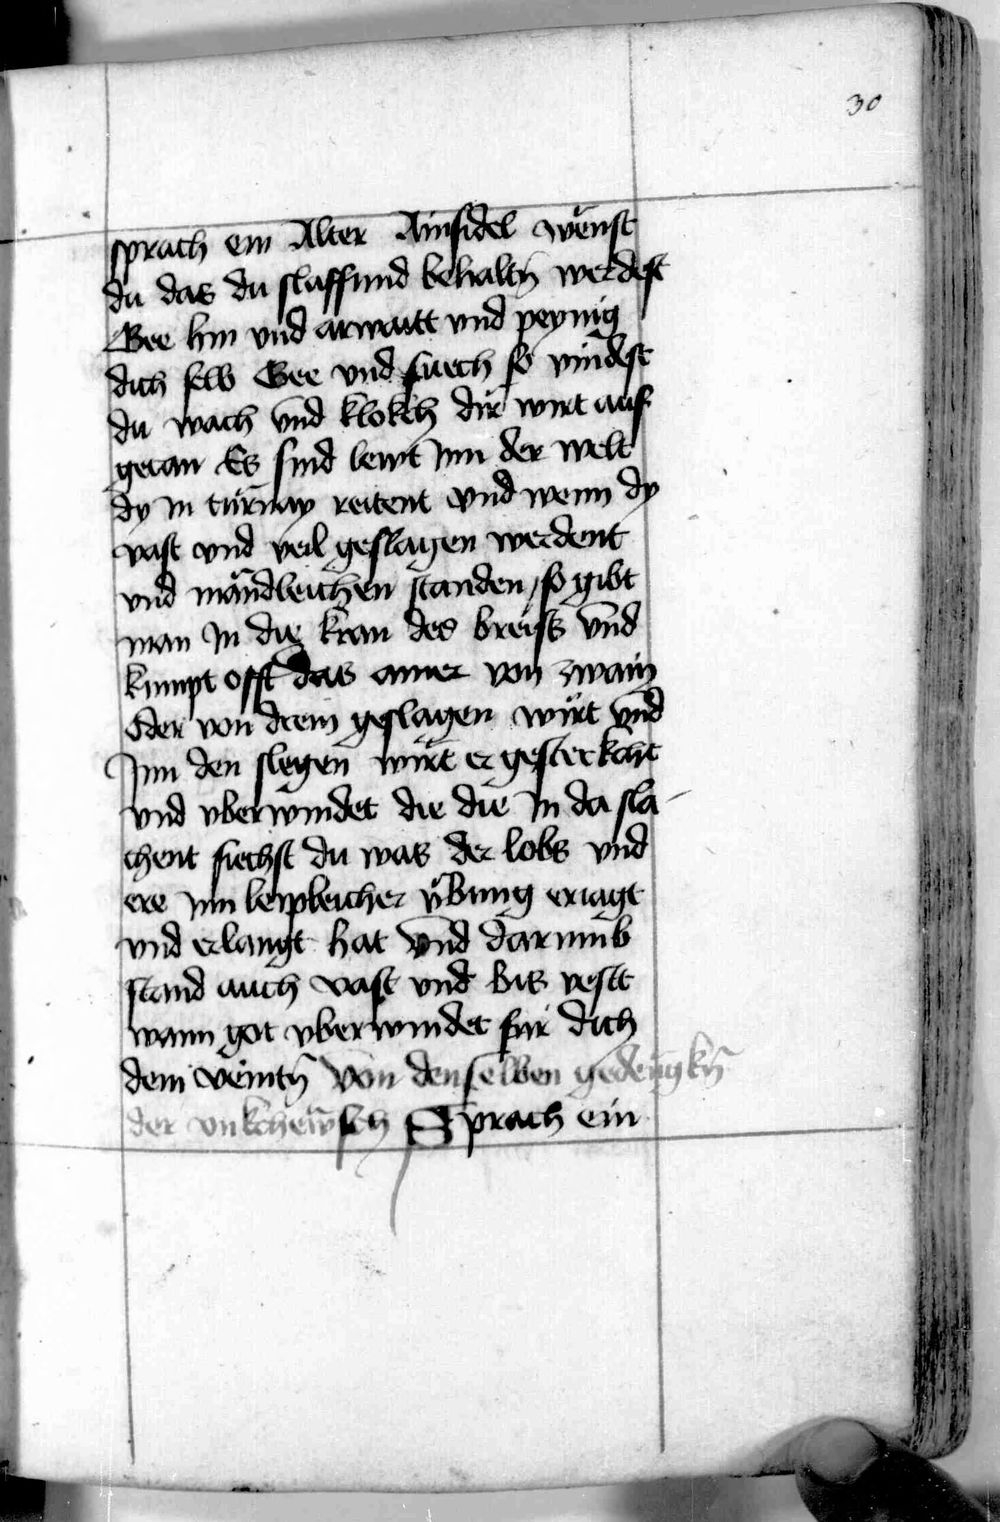 30
sprach ein Alter Ainsidel wënst
du das du slaffund behaltn̄ werdest
Gee hin vnd arwaitt vnd peynig
dich selb Gee vnd suech so vindest
du wach vnd klokch dir wirt auf
getan Es sind lewt Inn der welt
dy in türnay reitent vnd wenn dy
vast vnd veil geslagen werdent
vnd mändleichen standen / so gibt
man In die kran des breiss vnd
kumpt offt das ainer von zwain
Oder von drein geslagen wirt vnd
Inn den slegen wirt er gesterkcht
vnd vberwindet die die In da sla-
chent siechst du was der lobs vnd
ere Inn leipleicher übung eriagt
vnd erlangt hat vnd darumb
stand auch vast vnd bis vestt
wann got vberwindet für dich
dein veintn̄ Von denselben gedengkn̄
der vnkchewsch Sprach ein